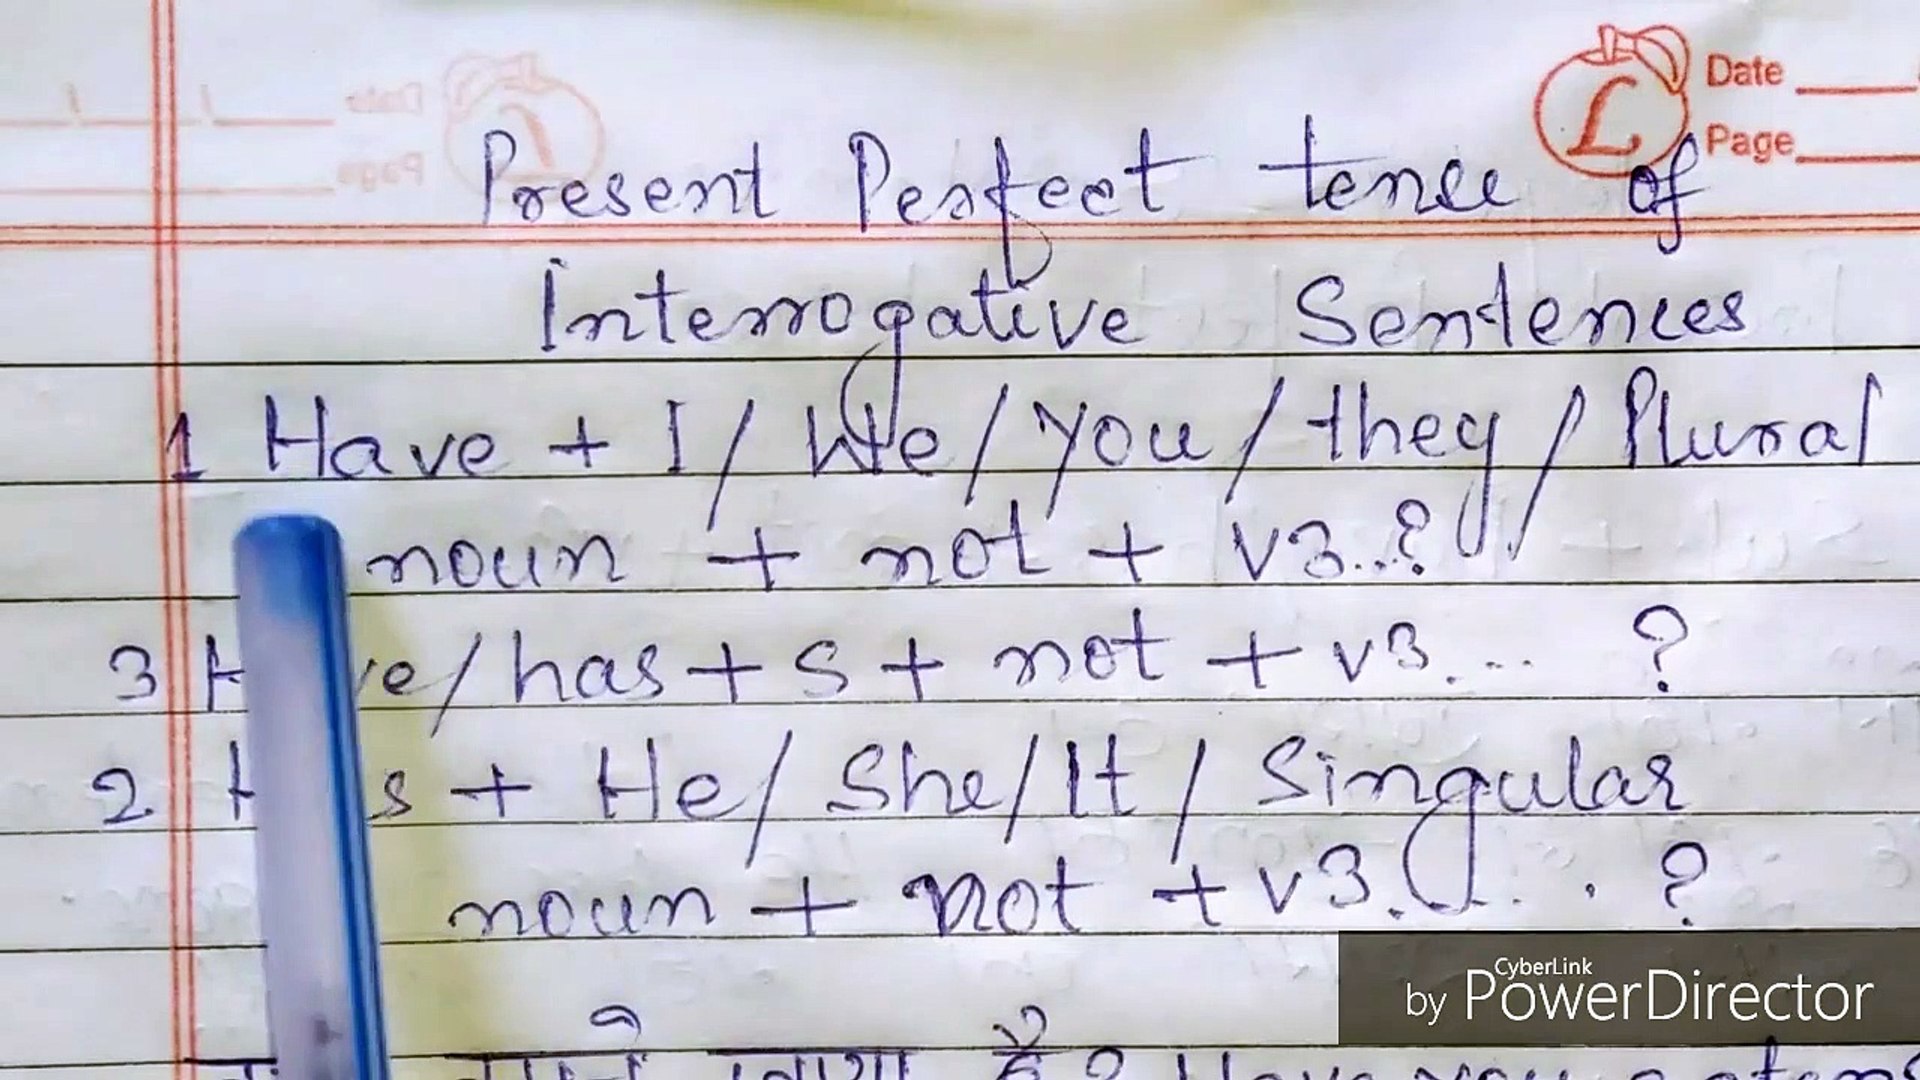 Date
Page
Present Perfect tense of
Interrogative Sentences
1 Have + I / We / You / they / Plural
noun + not + v3..?
3 /has + s + not + v3.... ?
2 + He / She / It / Singular
noun + not + v3. . . . ?
Have you
CyberLink
by PowerDirector